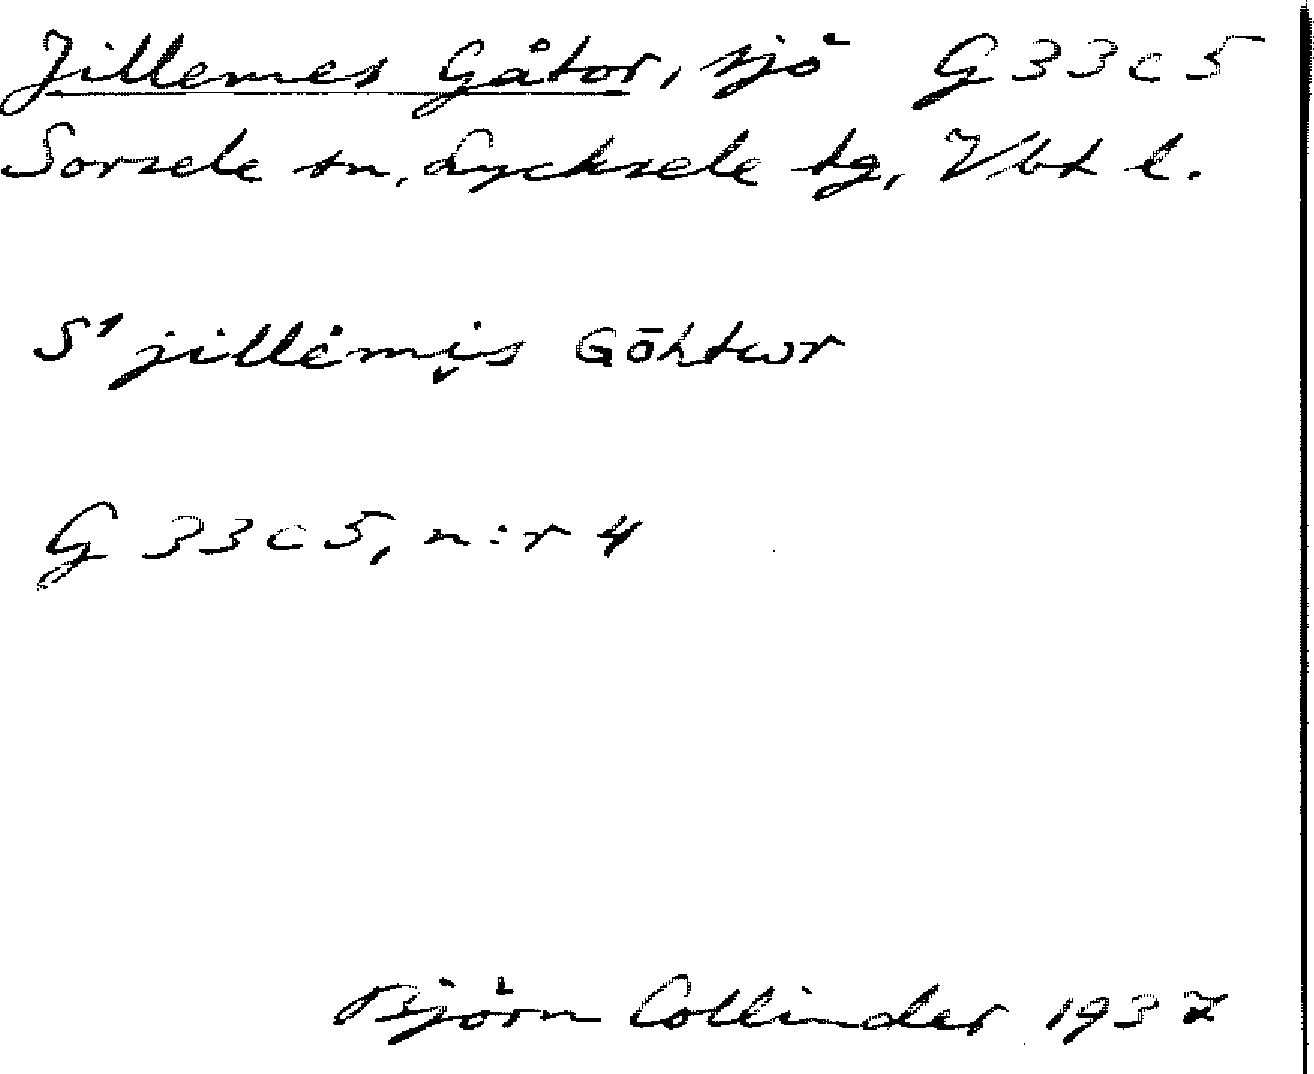 Jillemes Gåtor, sjö G 33 c 5
Sorsele sn, Lycksele tg, Vbt l.
S' jillėmi̮s Gōhtωr
G 33 c 5, n:r 4
Björn Collinder 1937